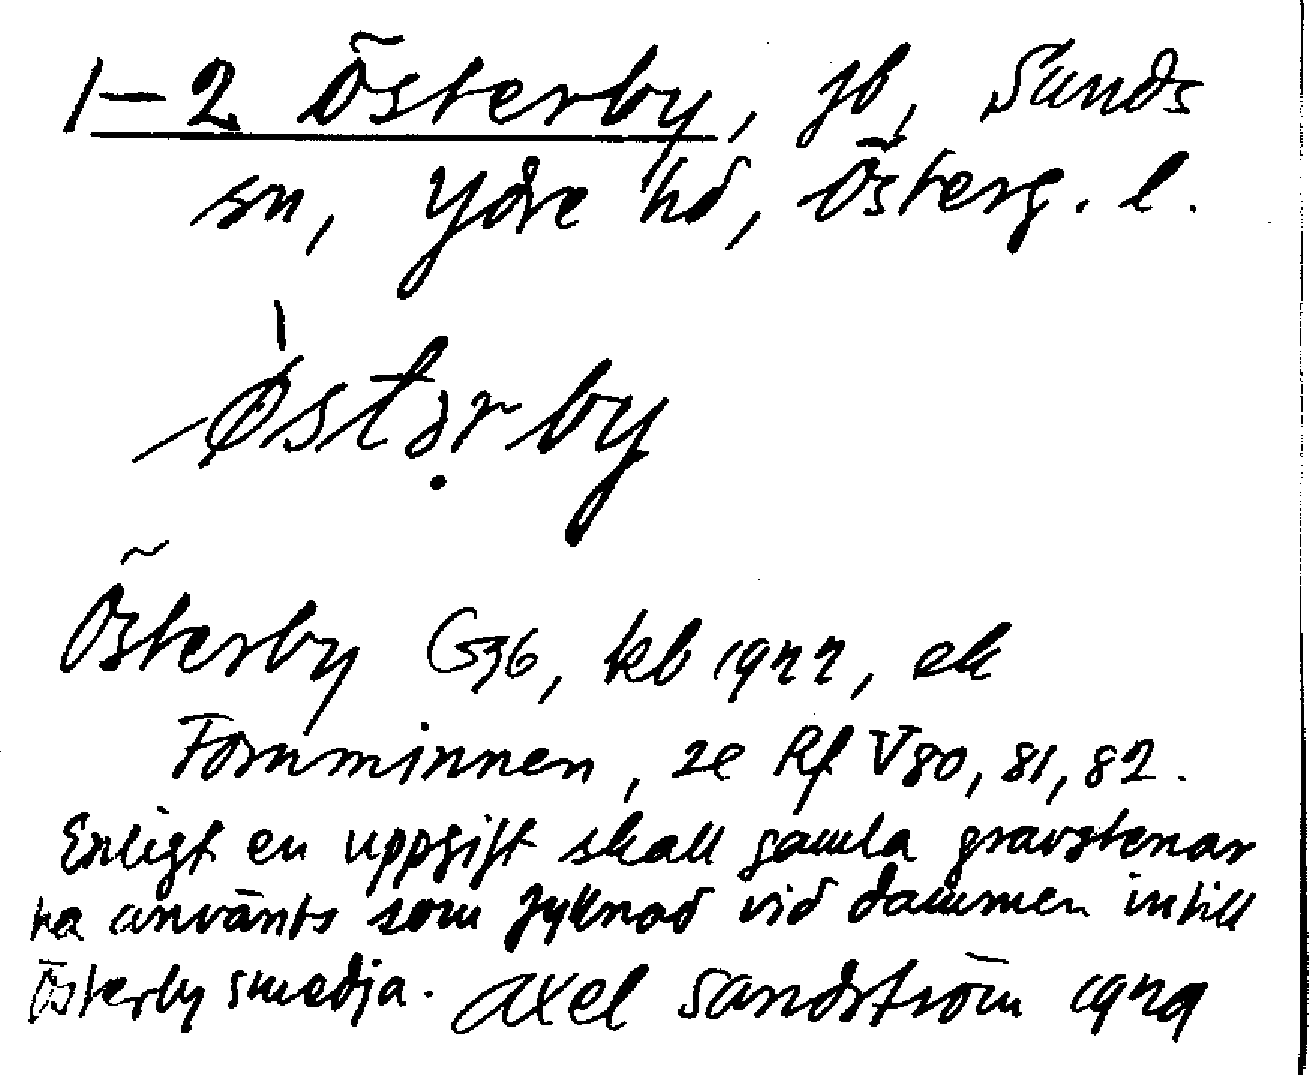 1-2 Österby, jb, Sunds
sn, Ydre hd, Österg. l.
Österby G36, kb 1922, ek
Fornminnen, se Rf V80, 81, 82.
Enligt en uppgift skall gamla gravstenar
ha använts som fyllnad vid dammen intill
Österby smedja. Axel Sandström 1929